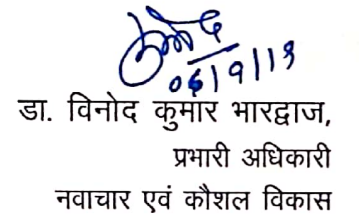 डा. विनोद कुमार भारद्वाज,
प्रभारी अधिकारी
नवाचार एवं कौशल विकास